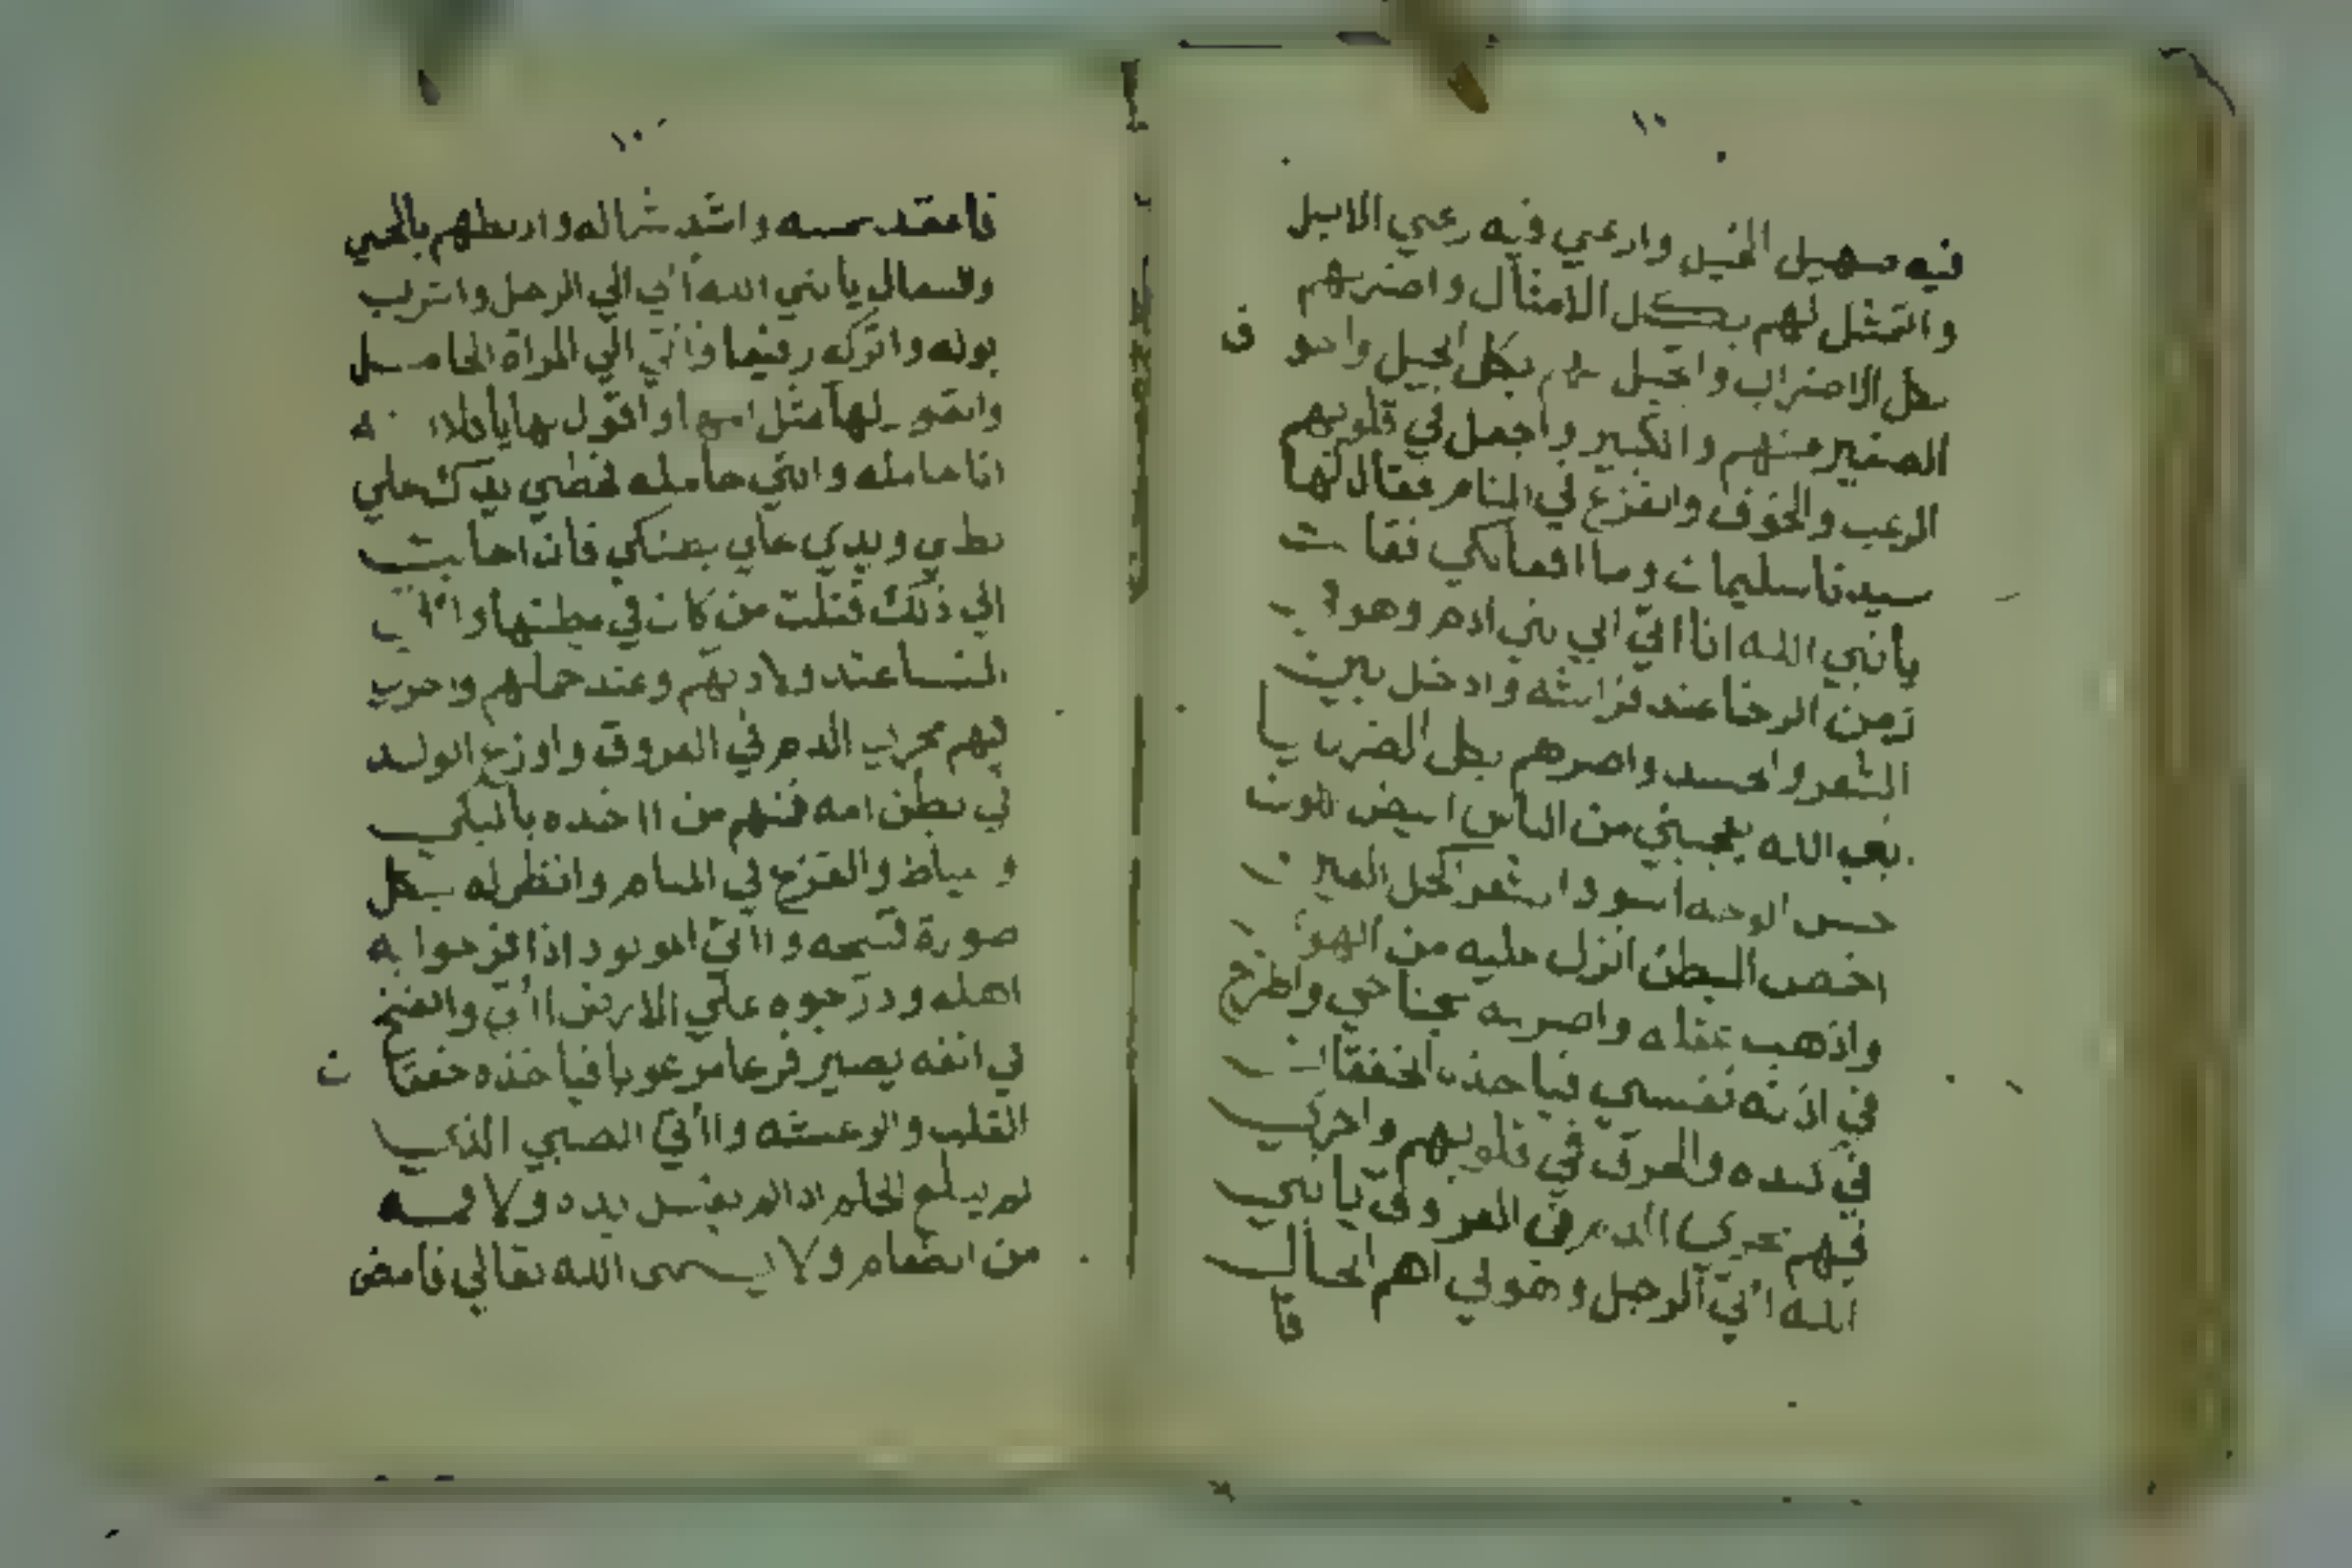 فيه صهيل الخيل وارعي فيه رعي الابيل
واتمثل لهم بكل الامثال واضربهم
بكل الاضراب واتخيل لهم بكل الخيل
الصغير منهم والكبير واجعل في قلوبهم
الرعب والخوف والفزع في المنام فقال لها
سيدنا سليمان وما افعالكي فقالت
يانبي الله انا اتي الي بني ادم وهو
زمن الرخا عند فراشه وادخل بين
الشعر والجسد واضرهم بكل الضرب يا
نبي الله يعجبني من الناس ابيض اللون
حسن الوجه اسود الشعر اكحل العين
اخص البطن انزل عليه من الهوا
واذهب عقله واضربه بجناحي واطرح
في اذنه نفسي فياخذه الخفقان
في كبده والعرق في قلوبهم واجري
فيهم مجري الدم في العروق يانبي
الله اتي الرجل وهو في اهم الحال
فا
فاعقد واشد شماله واربطهم بالحي
والسمال يانبي الله اتي الي الرجل واترب
بوله واتركه رفيعا واتي الي المراة الحامل
واتصور لها مثل واقول لها يافلانه
انا حامله وانتي حامله فحطي يدك علي
بطني ويدي علي بطنكي فان اجابت
الي ذلك قتلت من كان في بطنها واتي
النسا عند ولادتهم وعند حملهم واجري
فيهم مجري الدم في العروق وافزع الوليد
في بطن امه فمنهم من اخذه بالبكي
والعياط والفزع في المنام وانظر له بكل
صورة قبيحه واتي المولود اذا فرحوا به
اهله ودرجوه علي الارض اتي وانفخ
في انفه يصير فزعا مرعوبا فياخذه خفقان
القلب والرعشه واتي الصبي الذي
لم يبلغ الحلم اذا لم يغسل يده ولا فمه
من الطعام ولا يسمي الله تعالي فامض